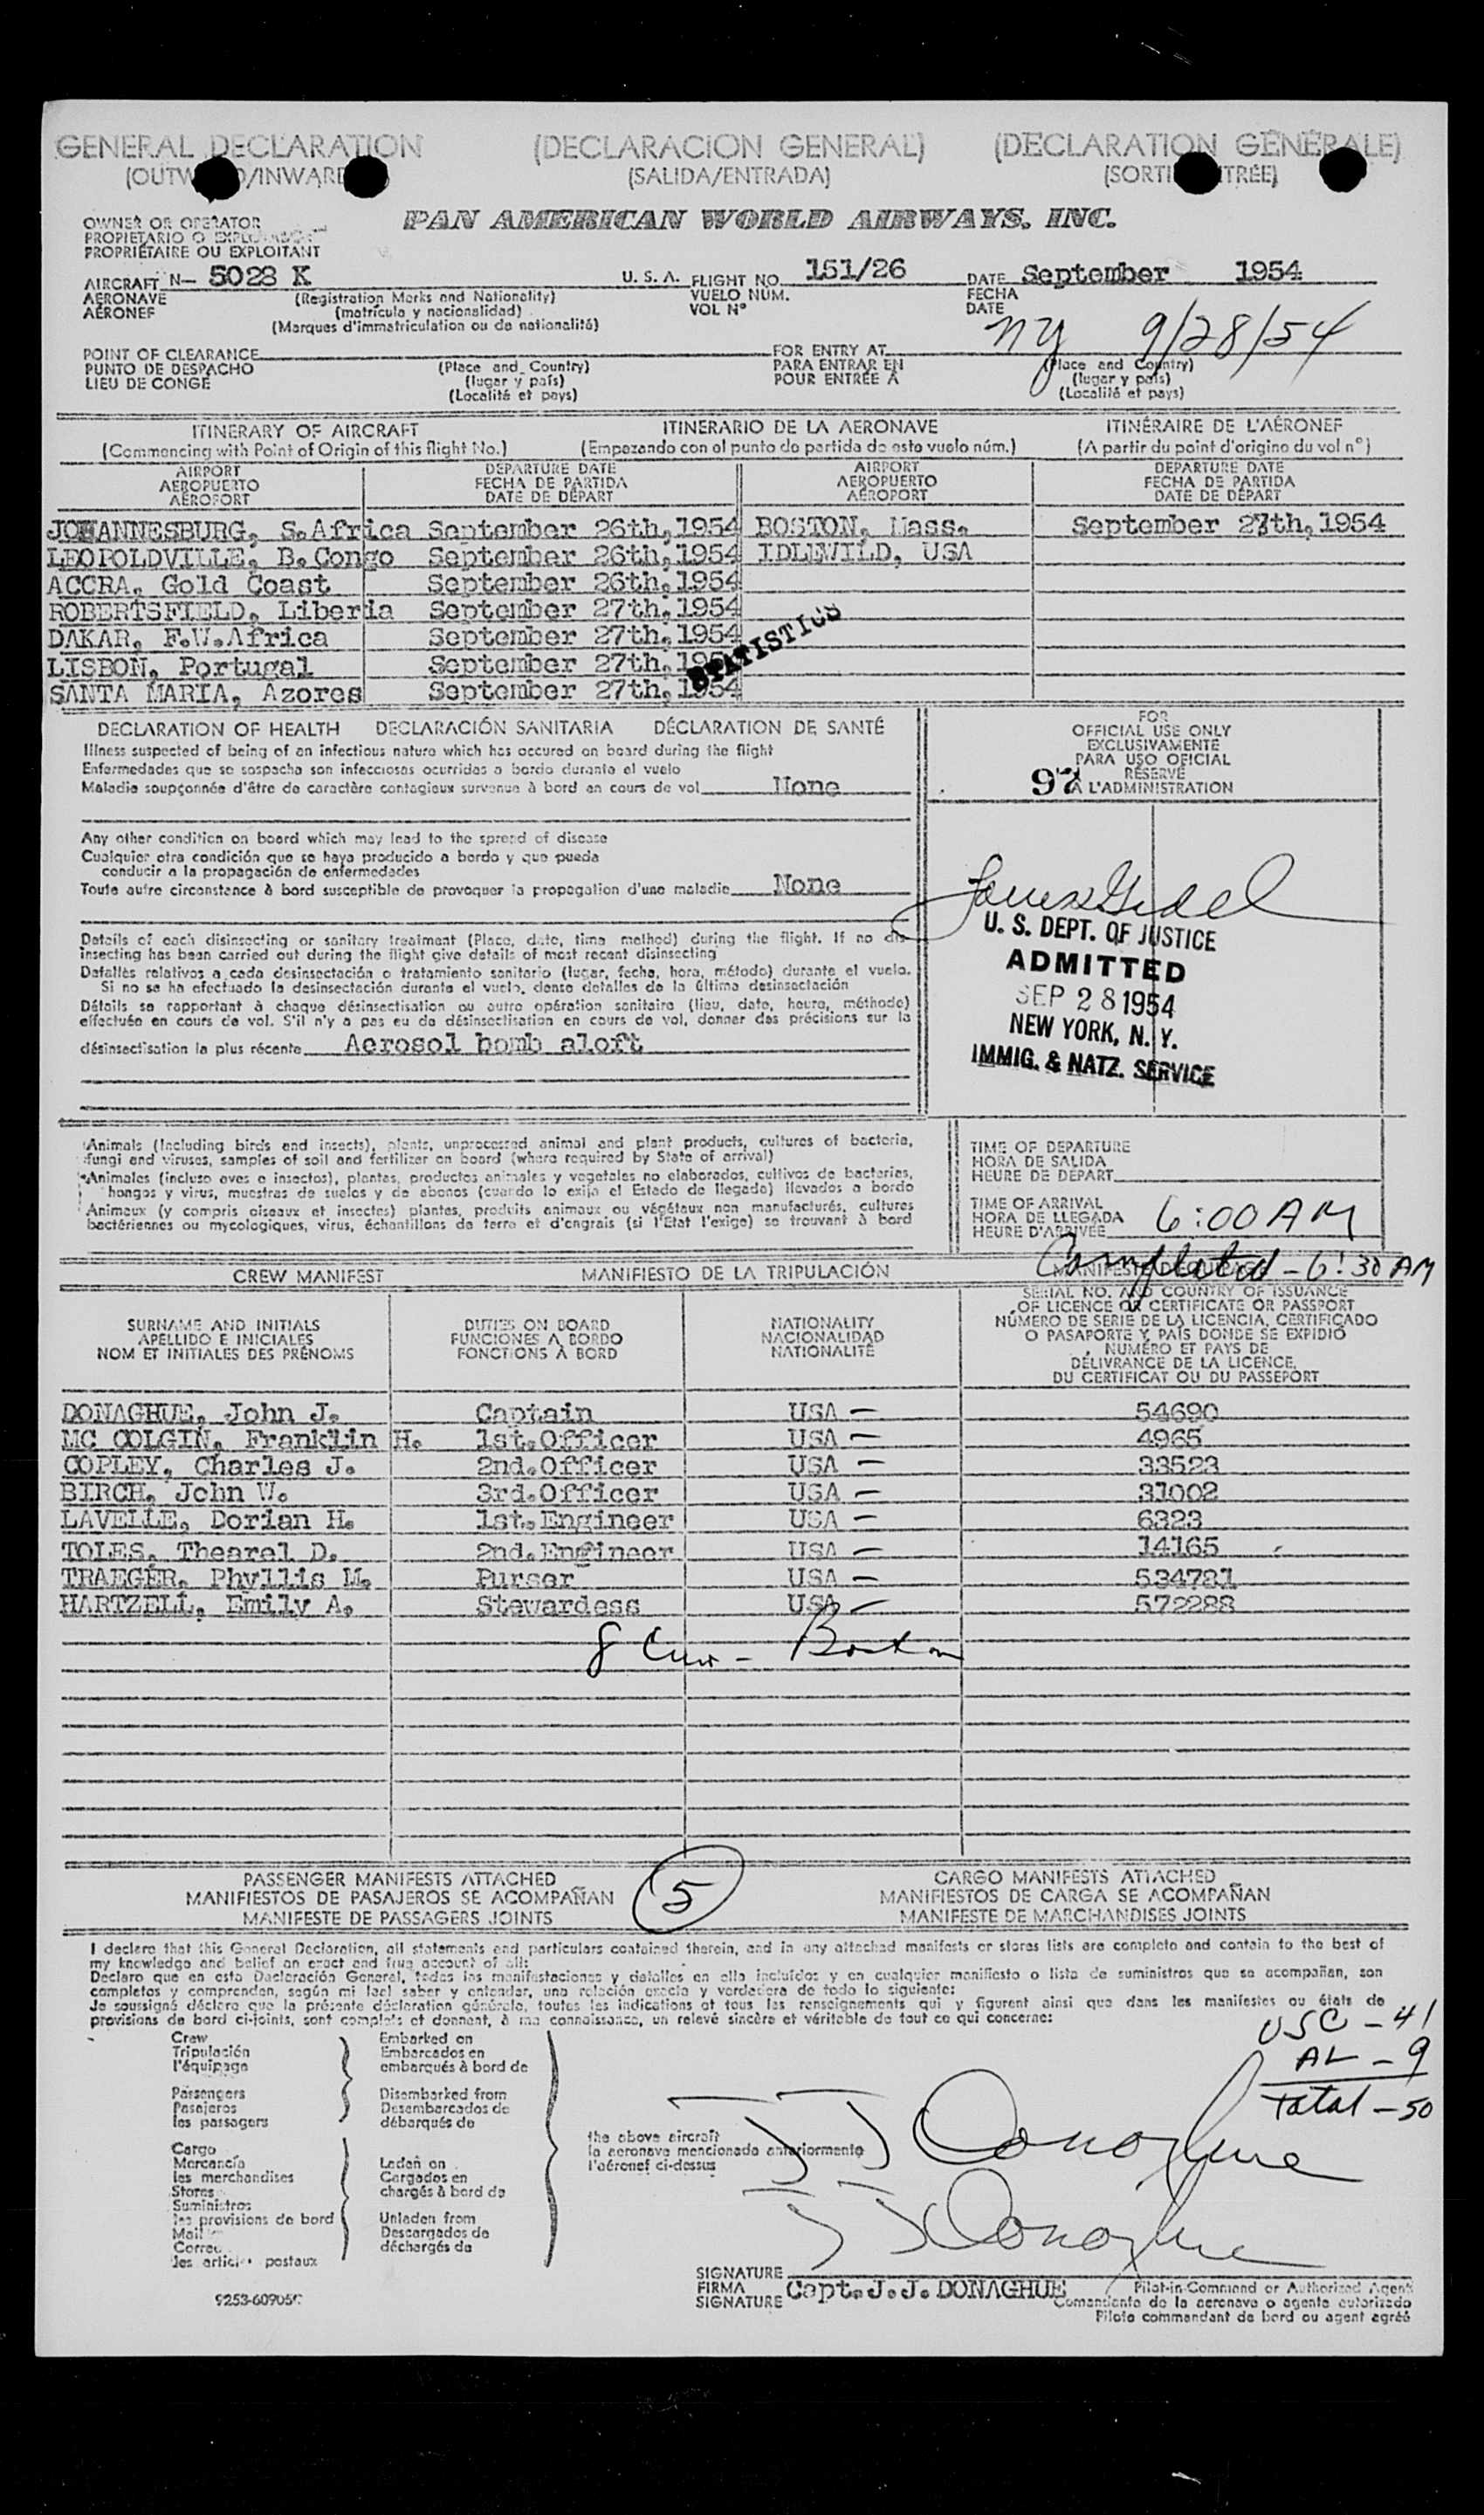 GENERAL DECLARATION (DECLARACION GENERAL) (DÉCLARATION GÉNÉRALE)
(SALIDA/ENTRADA)
OWNER OR OPERATOR
PROPIETARIO O
PROPRIÉTAIRE OU EXPLOITANT
PAN AMERICAN WORLD AIRWAYS, INC.
AIRCRAFT N- 5028 K U. S. A. FLIGHT NO. 151/26 DATE September 1954
AERONAVE (Registration Marks and Nationality) VUELO NÚM. FECHA
AÉRONEF (matrícula y nacionalidad) VOL Nº DATE
(Marques d'immatriculation ou de nationalité)
NY 9/28/54
POINT OF CLEARANCE FOR ENTRY AT
PUNTO DE DESPACHO (Place and Country) PARA ENTRAR EN (Place and Country)
LIEU DE CONGÉ (lugar y país) POUR ENTRÉE A (lugar y país)
(Localité et pays) (Localité et pays)
ITINERARY OF AIRCRAFT ITINERARIO DE LA AERONAVE ITINÉRAIRE DE L'AÉRONEF
(Commencing with Point of Origin of this flight No.) (Empezando con el punto de partida de este vuelo núm.) (A partir du point d'origine du vol nº)
AIRPORT DEPARTURE DATE AIRPORT DEPARTURE DATE
AEROPUERTO FECHA DE PARTIDA AEROPUERTO FECHA DE PARTIDA
AÉROPORT DATE DE DÉPART AÉROPORT DATE DE DÉPART
JOHANNESBURG, S.Africa September 26th,1954 BOSTON, Mass. September 27th,1954
LEOPOLDVILLE, B.Congo September 26th,1954 IDLEWILD, USA
ACCRA, Gold Coast September 26th,1954
ROBERTSFIELD, Liberia September 27th,1954
DAKAR, F.W.Africa September 27th,1954
LISBON, Portugal September 27th,1954
SANTA MARIA, Azores September 27th,1954
STATISTICS
DECLARATION OF HEALTH DECLARACIÓN SANITARIA DÉCLARATION DE SANTÉ
Illness suspected of being of an infectious nature which has occured on board during the flight
Enfermedades que se sospecha son infecciosas ocurridas a bordo durante el vuelo
Maladie soupçonnée d'être de caractère contagieux survenue à bord en cours de vol None
FOR
OFFICIAL USE ONLY
EXCLUSIVAMENTE
PARA USO OFICIAL
RÉSERVÉ
97 A L'ADMINISTRATION
Any other condition on board which may lead to the spread of disease
Cualquier otra condición que se haya producido a bordo y que pueda
conducir a la propagación de enfermedades
Toute autre circonstance à bord susceptible de provoquer la propagation d'une maladie None
Details of each disinsecting or sanitary treatment (Place, date, time method) during the flight. If no dis-
insecting has been carried out during the flight give details of most recent disinsecting
Detalles relativos a cada desinsectación o tratamiento sanitario (lugar, fecha, hora, método) durante el vuelo.
Si no se ha efectuado la desinsectación durante el vuelo, dense detalles de la última desinsectación
Détails se rapportant à chaque désinsectisation ou autre opération sanitaire (lieu, date, heure, méthode)
effectuée en cours de vol. S'il n'y a pas eu de désinsectisation en cours de vol, donner des précisions sur la
désinsectisation la plus récente Aerosol bomb aloft
U. S. DEPT. OF JUSTICE
ADMITTED
SEP 28 1954
NEW YORK, N. Y.
IMMIG. & NATZ. SERVICE
Animals (including birds and insects), plants, unprocessed animal and plant products, cultures of bacteria,
fungi and viruses, samples of soil and fertilizer on board (where required by State of arrival)
Animales (incluso aves e insectos), plantas, productos animales y vegetales no elaborados, cultivos de bacterias,
hongos y virus, muestras de suelos y de abonos (cuando lo exija el Estado de llegada) llevados a bordo
Animaux (y compris oiseaux et insectes) plantes, produits animaux ou végétaux non manufacturés, cultures
bactériennes ou mycologiques, virus, échantillons de terre et d'engrais (si l'Etat l'exige) se trouvant à bord
TIME OF DEPARTURE
HORA DE SALIDA
HEURE DE DÉPART
TIME OF ARRIVAL
HORA DE LLEGADA 6:00 AM
HEURE D'ARRIVÉE
Completed - 6:30 AM
CREW MANIFEST MANIFIESTO DE LA TRIPULACIÓN
SURNAME AND INITIALS DUTIES ON BOARD NATIONALITY SERIAL NO. AND COUNTRY OF ISSUANCE
APELLIDO E INICIALES FUNCIONES A BORDO NACIONALIDAD OF LICENCE OR CERTIFICATE OR PASSPORT
NOM ET INITIALES DES PRÉNOMS FONCTIONS À BORD NATIONALITÉ NÚMERO DE SERIE DE LA LICENCIA, CERTIFICADO
O PASAPORTE Y PAÍS DONDE SE EXPIDIÓ
NUMÉRO ET PAYS DE
DÉLIVRANCE DE LA LICENCE,
DU CERTIFICAT OU DU PASSEPORT
DONAGHUE, John J. Captain USA — 54690
MC COLGIN, Franklin H. 1st.Officer USA — 4965
COPLEY, Charles J. 2nd.Officer USA — 33523
BIRCH, John W. 3rd.Officer USA — 31002
LAVELLE, Dorian H. 1st.Engineer USA — 6323
TOLES, Thearel D. 2nd.Engineer USA — 14165
TRAEGER, Phyllis M. Purser USA — 534781
HARTZELL, Emily A. Stewardess USA — 572288
8 Crew - Boston
PASSENGER MANIFESTS ATTACHED CARGO MANIFESTS ATTACHED
MANIFIESTOS DE PASAJEROS SE ACOMPAÑAN 5 MANIFIESTOS DE CARGA SE ACOMPAÑAN
MANIFESTE DE PASSAGERS JOINTS MANIFESTE DE MARCHANDISES JOINTS
I declare that this General Declaration, all statements and particulars contained therein, and in any attached manifests or stores lists are complete and contain to the best of
my knowledge and belief an exact and true account of all:
Declaro que en esta Declaración General, todas las manifestaciones y detalles en ella incluídos y en cualquier manifiesto o lista de suministros que se acompañan, son
completos y comprenden, según mi leal saber y entender, una relación exacta y verdadera de todo lo siguiente:
Je soussigné déclare que la présente déclaration générale, toutes les indications et tous les renseignements qui y figurent ainsi que dans les manifestes ou états de
provisions de bord ci-joints, sont complets et donnent, à ma connaissance, un relevé sincère et véritable de tout ce qui concerne:
USC - 41
AL - 9
Total - 50
Crew Embarked on
Tripulación Embarcados en
l'équipage embarqués à bord de
Passengers Disembarked from
Pasajeros Desembarcados de
les passagers débarqués de
the above aircraft
la aeronave mencionada anteriormente
l'aéronef ci-dessus
Cargo
Mercancía Laden on
les merchandises Cargados en
Stores chargés à bord de
Suministros
les provisions de bord Unladen from
Mail Descargados de
Correo déchargés de
les articles postaux
J J Donaghue
J J Donaghue
SIGNATURE
FIRMA Capt. J. J. DONAGHUE Pilot-in-Command or Authorized Agent
SIGNATURE Comandante de la aeronave o agente autorizado
Pilote commandant de bord ou agent agréé